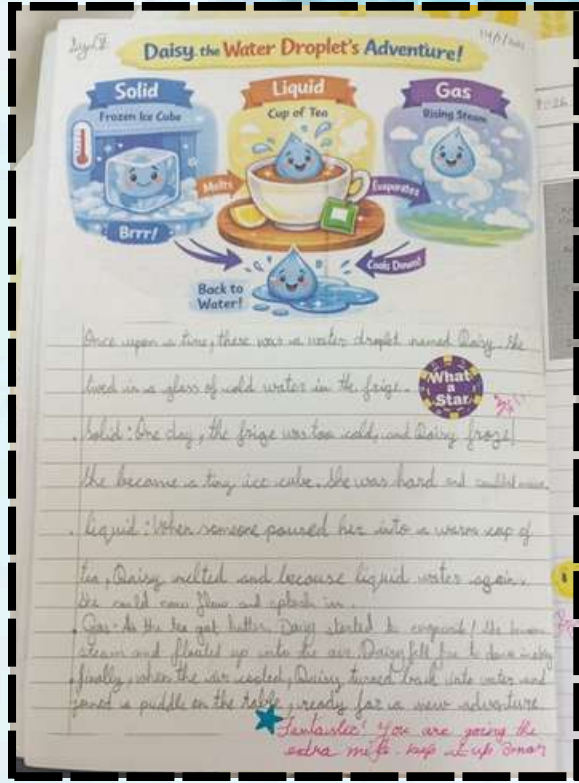 Daisy the Water Droplet's Adventure!
Solid
Frozen Ice Cube
Brrr!
Melts
Liquid
Cup of Tea
Evaporates
Gas
Rising Steam
Cools Down!
Back to
Water!
Once upon a time, there was a water droplet named Daisy. She
lived in a glass of cold water in the frige.
What
a
Star
Solid: One day, the frige was too cold, and Daisy froze!
She became a tiny ice cube. She was hard and couldn't
liquid: When someone poured her into a warm cup of
tea, Daisy melted and became liquid water again.
She could now flow and splash in.
Gas: As the tea got hotter Daisy started to
steam and floated up into the air. Daisy felt
finally, when the air cooled, Daisy turned back into water and
joined a puddle on the table, ready for a new adventure
Fantastic! You are going the
extra mile. keep it up